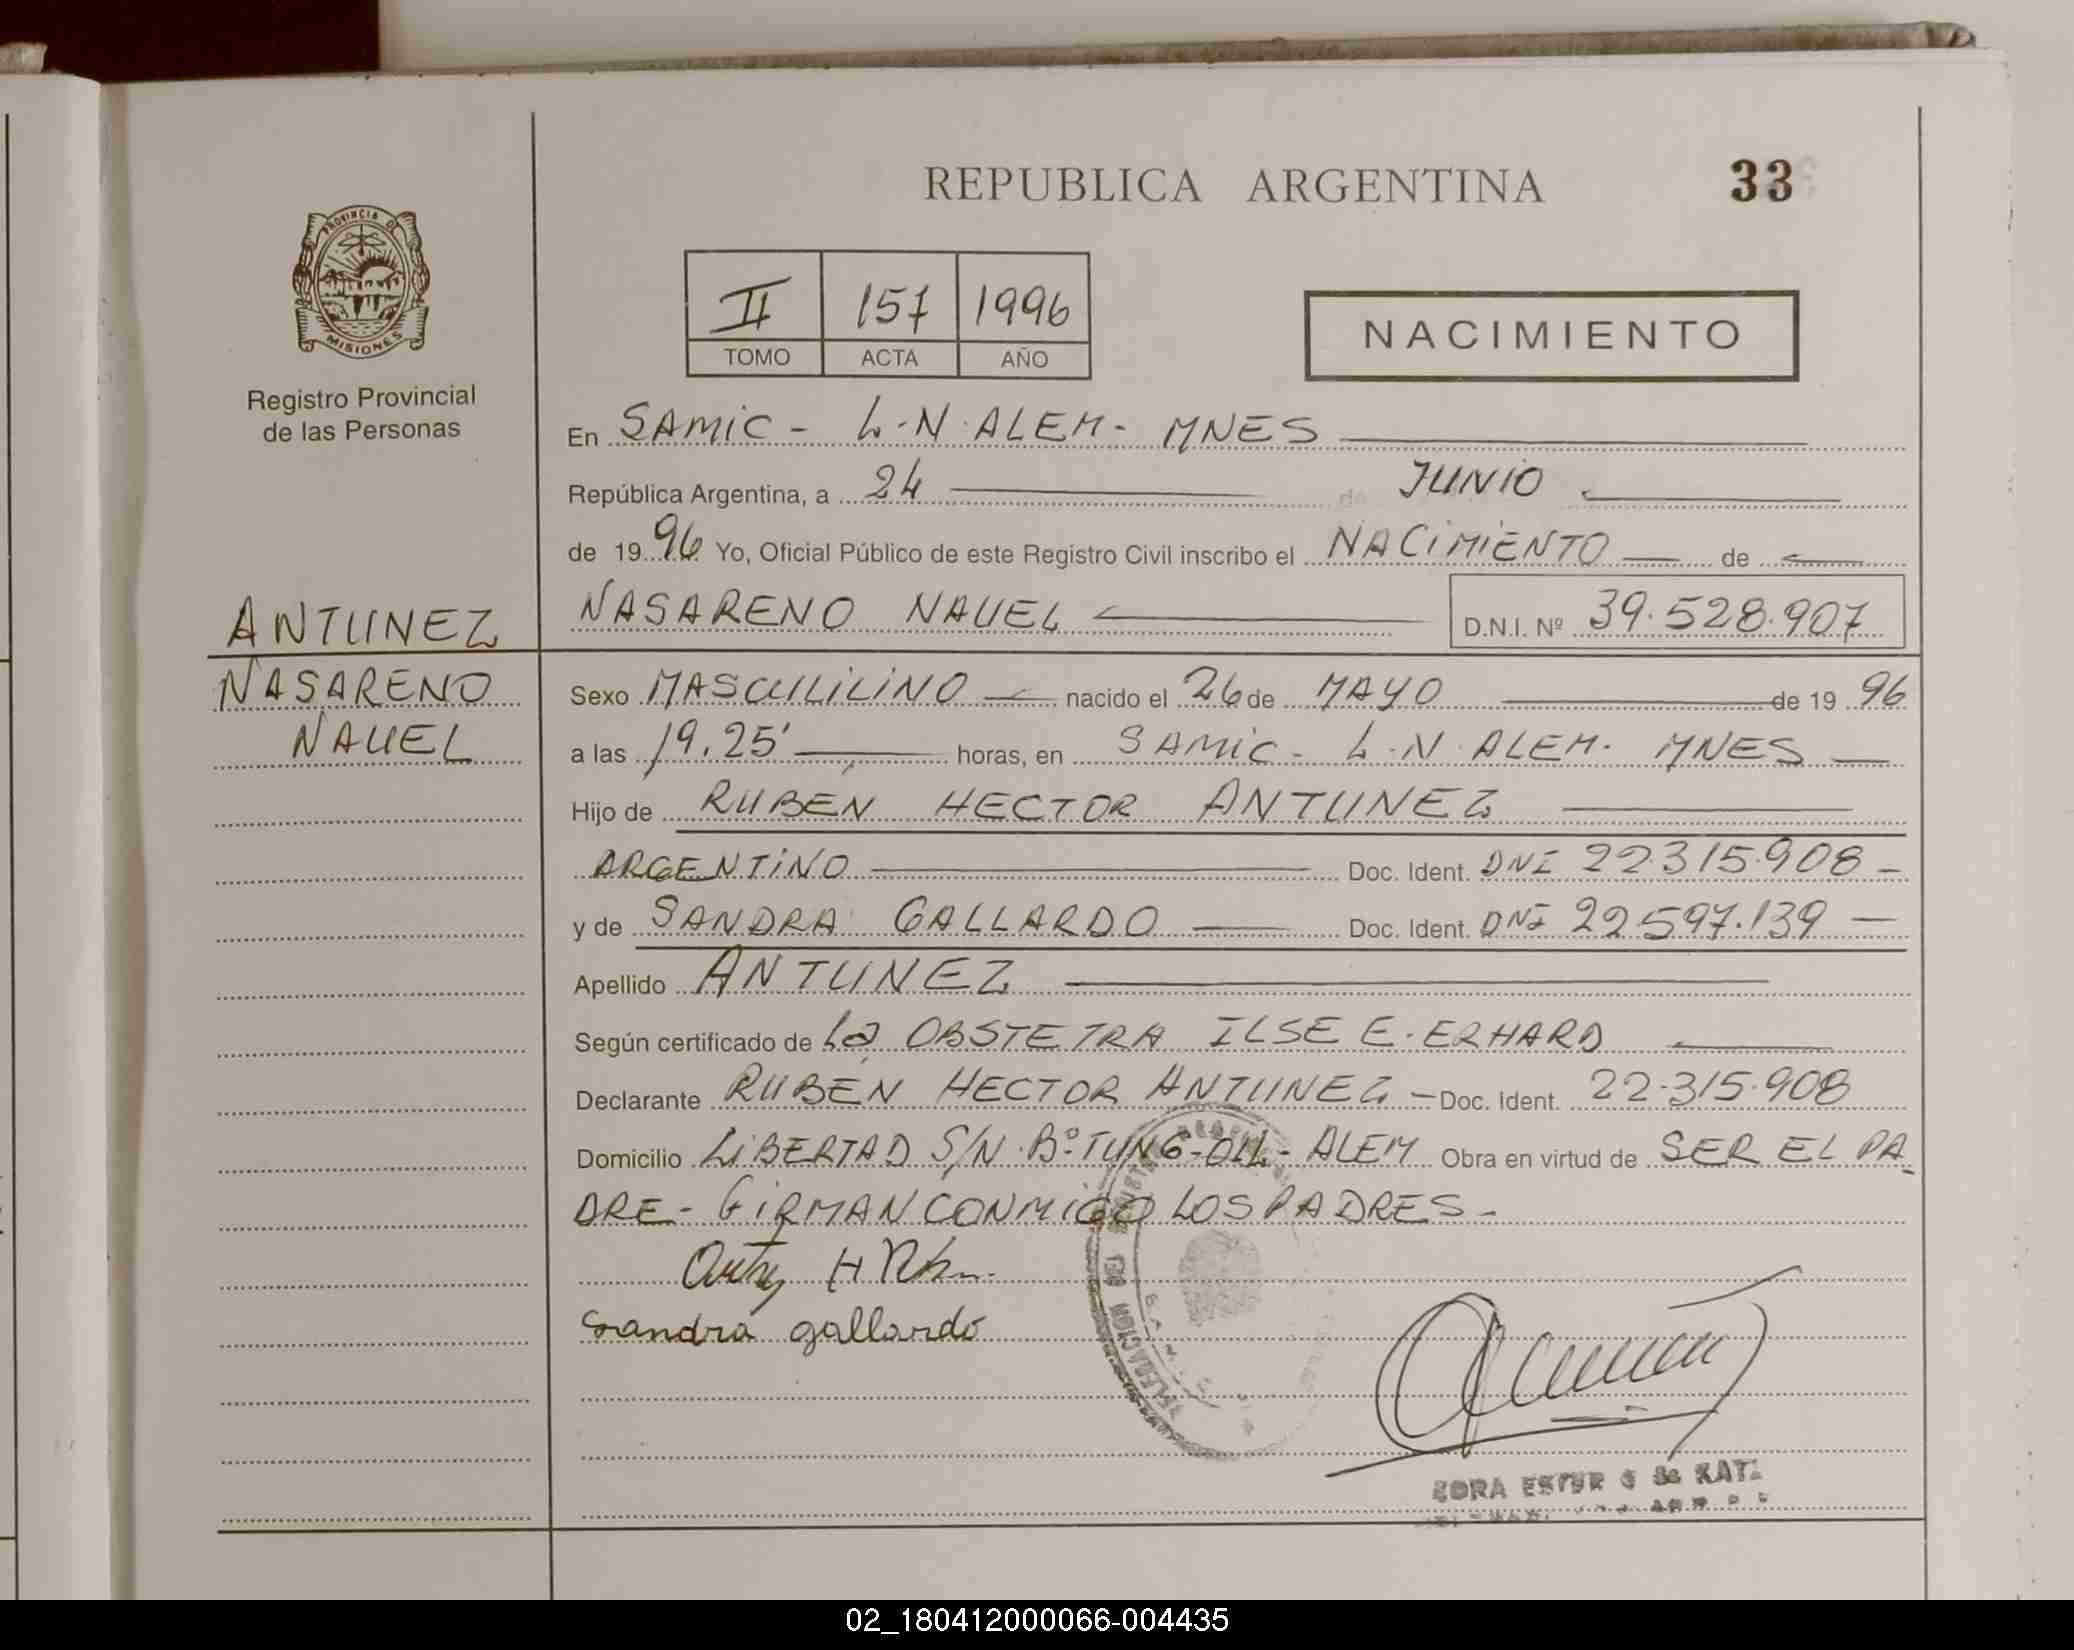 REPUBLICA ARGENTINA 33
PROVINCIA DE
MISIONES
Registro Provincial
de las Personas
II 157 1996
TOMO ACTA AÑO
NACIMIENTO
En SAMIC - L.N. ALEM - MNES
República Argentina, a 24 de JUNIO
de 1996 Yo, Oficial Público de este Registro Civil inscribo el NACIMIENTO de
NASARENO NAUEL D.N.I. Nº 39.528.907
ANTUNEZ
NASARENO
NAUEL
Sexo MASCULILINO nacido el 26 de MAYO de 1996
a las 19.25' horas, en SAMIC - L.N. ALEM. MNES
Hijo de RUBEN HECTOR ANTUNEZ
ARGENTINO Doc. Ident. DNI 22.315.908 -
y de SANDRA GALLARDO Doc. Ident. DNI 22.597.139
Apellido ANTUNEZ
Según certificado de La OBSTETRA ILSE E. ERHARD
Declarante RUBEN HECTOR ANTUNEZ - Doc. Ident. 22.315.908
Domicilio LIBERTAD S/N. Bº TUNG-OIL - ALEM Obra en virtud de SER EL PA
DRE - FIRMAN CONMIGO LOS PADRES -
Sandra gallardo
02_180412000066-004435